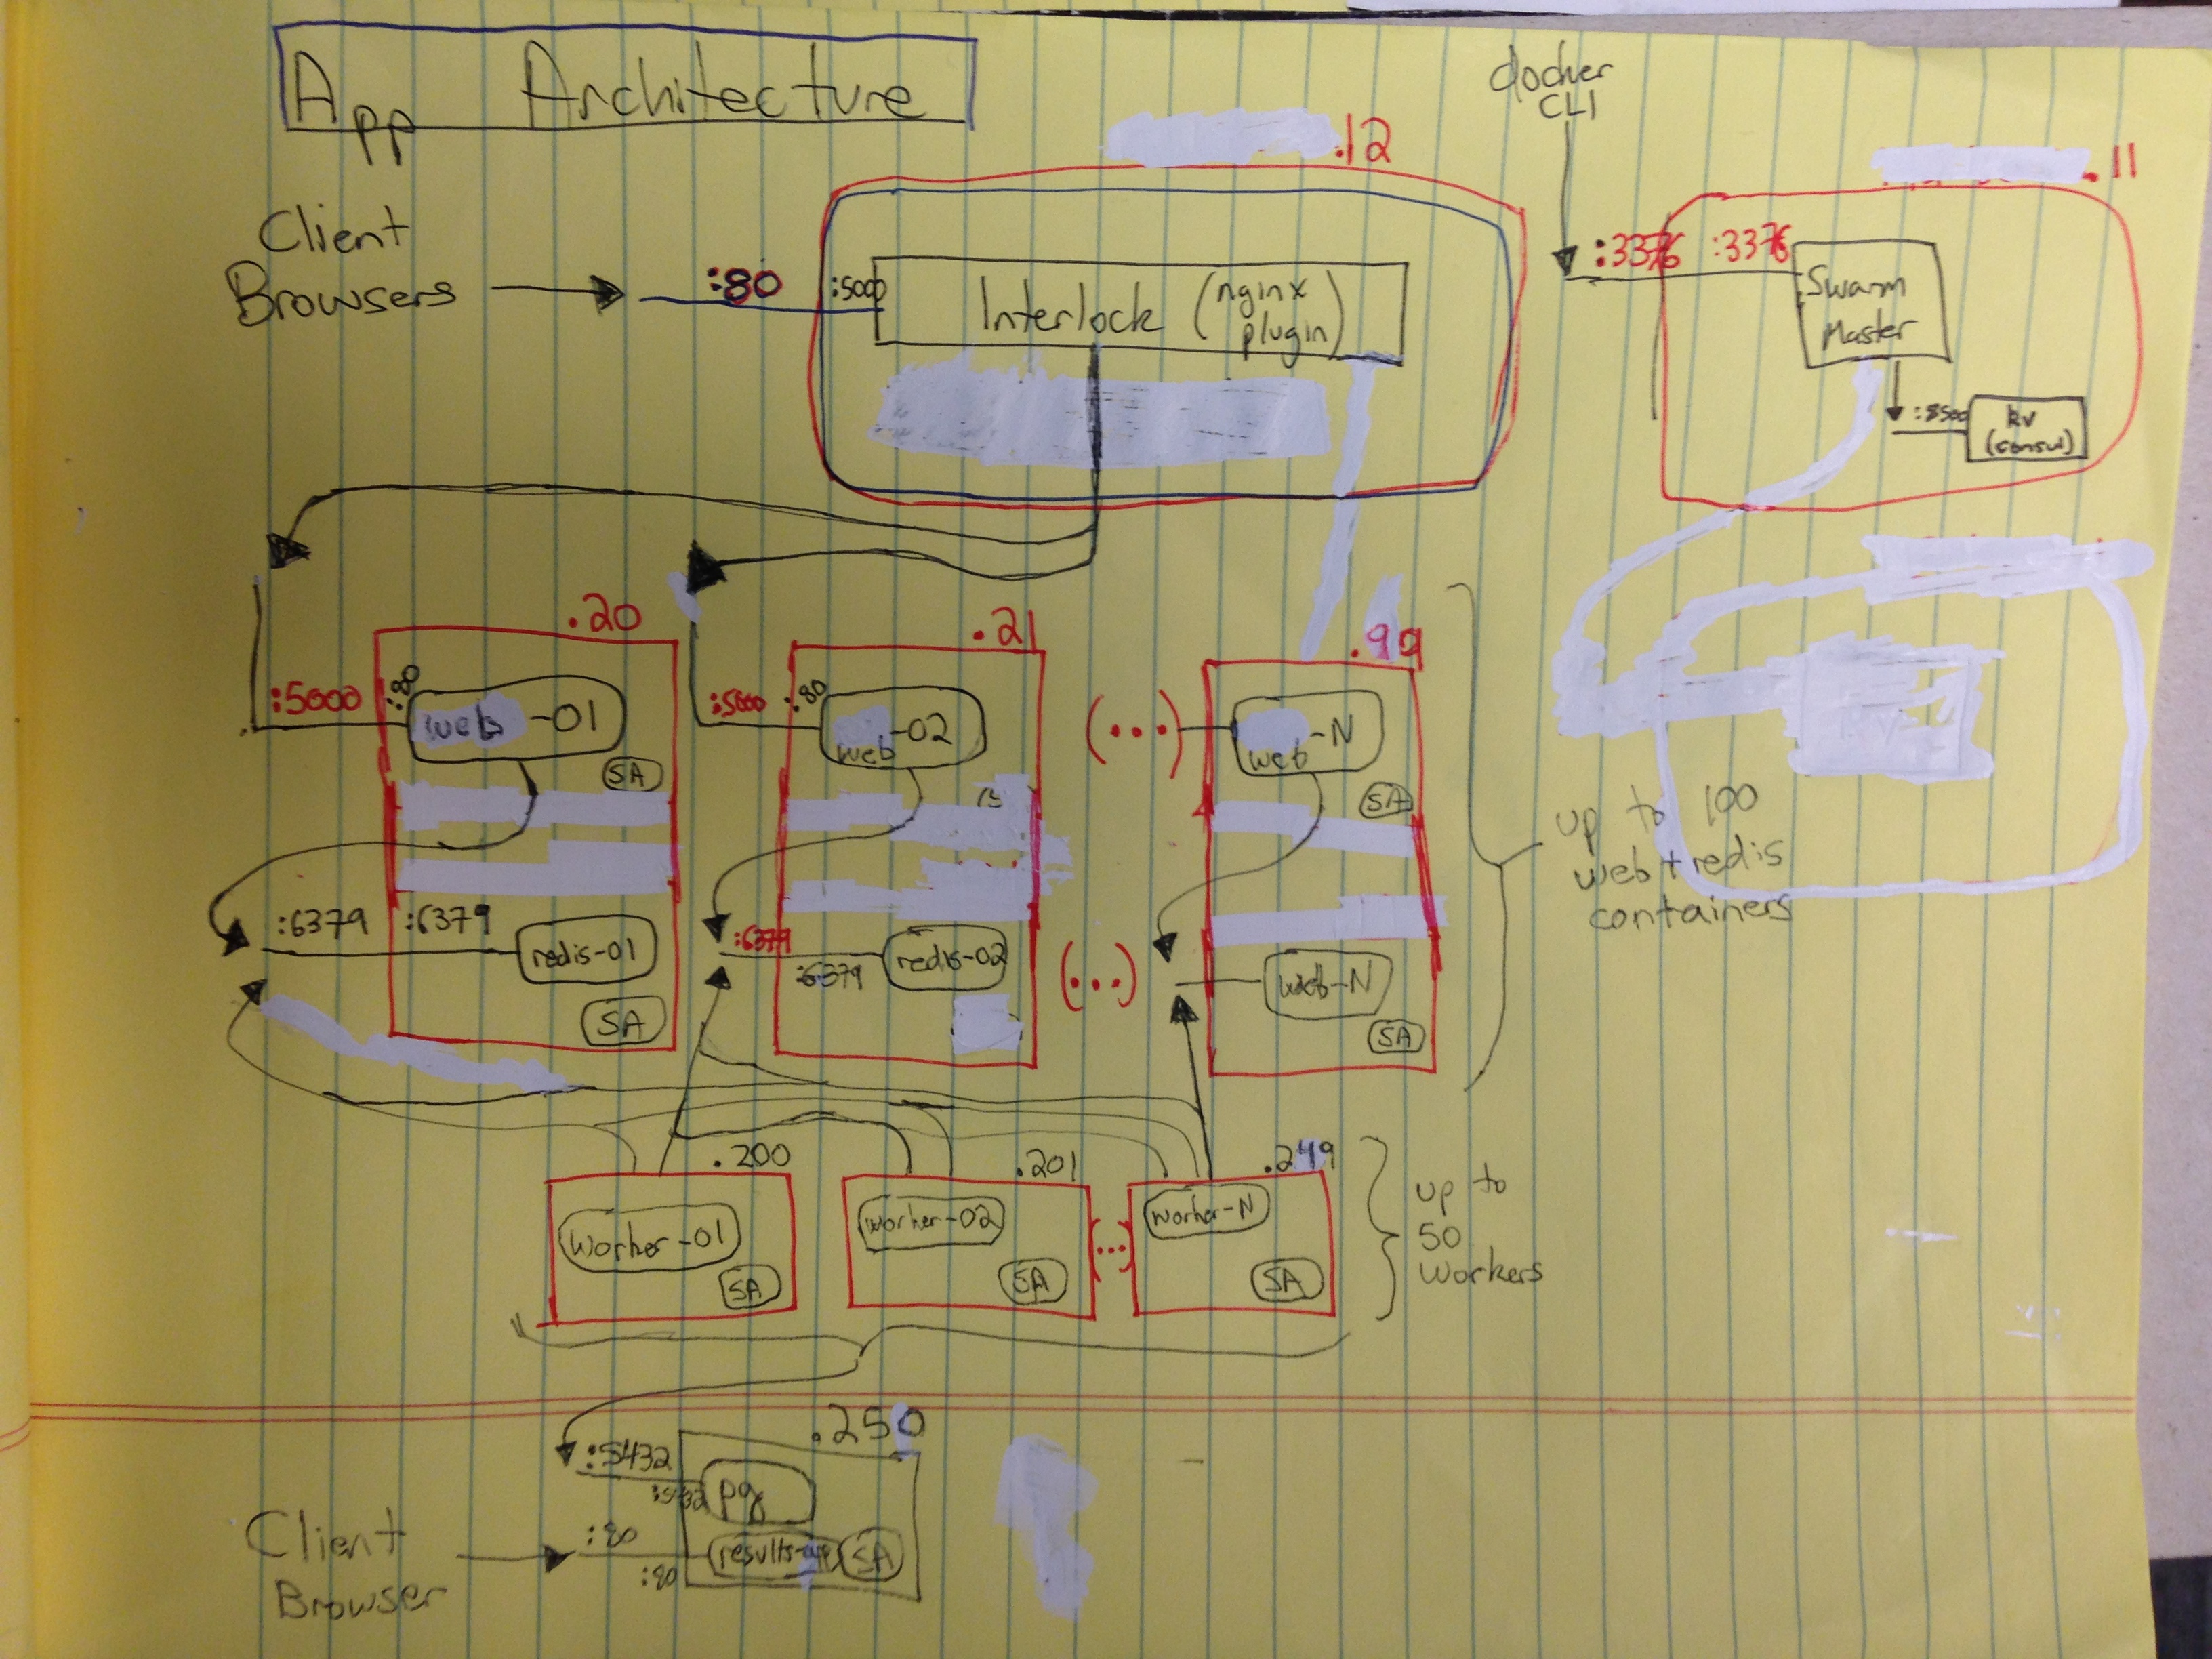 App Architecture
Client
Browsers
:80
:5000
Interlock (nginx
plugin)
.12
docker
CLI
:3376
:3376
Swarm
Master
:8500
kv
(consul)
.11
:5000
:80
web-01
SA
.20
:6379
:6379
redis-01
SA
:5000
:80
web-02
.21
:6379
:6379
redis-02
(...)
(...)
web-N
SA
.99
web-N
SA
up to 100
web + redis
containers
Worker-01
SA
.200
Worker-02
SA
.201
(...)
Worker-N
SA
.249
up to
50
Workers
:5432
:5432
pg
.250
Client
Browser
:80
:80
results-app
SA